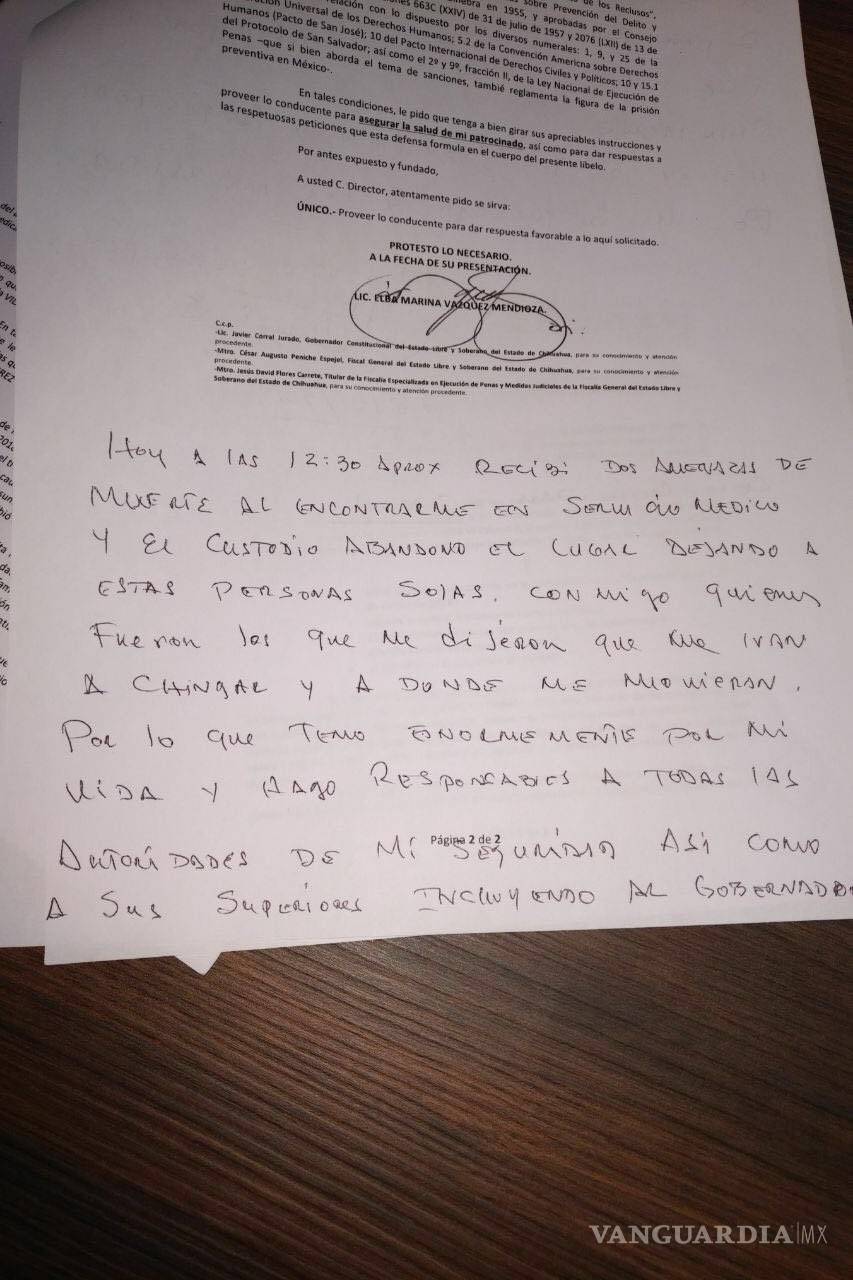 sobre Prevención del Delito y
de los Reclusos",
nebra en 1955, y aprobadas por el Consejo
663C (XXIV) de 31 de julio de 1957 y 2076 (LXII) de 13 de
relación con lo dispuesto por los diversos numerales: 1, 9, y 25 de la
Universal de los Derechos Humanos; 5.2 de la Convención Americna sobre Derechos
Humanos (Pacto de San José); 10 del Pacto Internacional de Derechos Civiles y Políticos; 10 y 15.1
del Protocolo de San Salvador; así como el 2º y 9º, fracción II, de la Ley Nacional de Ejecución de
Penas –que si bien aborda el tema de sanciones, també reglamenta la figura de la prisión
preventiva en México-.
En tales condiciones, le pido que tenga a bien girar sus apreciables instrucciones y
proveer lo conducente para asegurar la salud de mi patrocinado, así como para dar respuestas a
las respetuosas peticiones que esta defensa formula en el cuerpo del presente líbelo.
Por antes expuesto y fundado,
A usted C. Director, atentamente pido se sirva:
ÚNICO.- Proveer lo conducente para dar respuesta favorable a lo aquí solicitado.
PROTESTO LO NECESARIO.
A LA FECHA DE SU PRESENTACIÓN.
LIC. ELBA MARINA VAZQUEZ MENDOZA.
C.c.p.
-Lic. Javier Corral Jurado, Gobernador Constitucional del Estado Libre y Soberano del Estado de Chihuahua, para su conocimiento y atención
procedente.
-Mtro. César Augusto Peniche Espejel, Fiscal General del Estado Libre y Soberano del Estado de Chihuahua, para su conocimiento y atención
procedente.
-Mtro. Jesús David Flores Carrete, Titular de la Fiscalía Especializada en Ejecución de Penas y Medidas Judiciales de la Fiscalía General del Estado Libre y
Soberano del Estado de Chihuahua, para su conocimiento y atención procedente.
Hoy A las 12:30 Aprox Recibi DOS AMENAZAS DE
MUERTE AL ENCONTRARME EN SERVICIO MEDICO
Y El CUSTODIO ABANDONO EL LUGAR DEJANDO A
ESTAS PERSONAS SOlAS. CON MIgo quienes
Fueron los que Me dijeron que me IVAN
A CHINGAR Y A DONDE ME MOVIERAN.
Por lo que TEMO ENORMEMENTE POR MI
VIDA Y HAgo RESPONSABLES A TODAS lAS
Página 2 de 2
AUTORIDADES DE MI SEGURIDAD ASi COMO
A Sus SUPERIORES INCLUYENDO AL GOBERNADOR
VANGUARDIA|MX